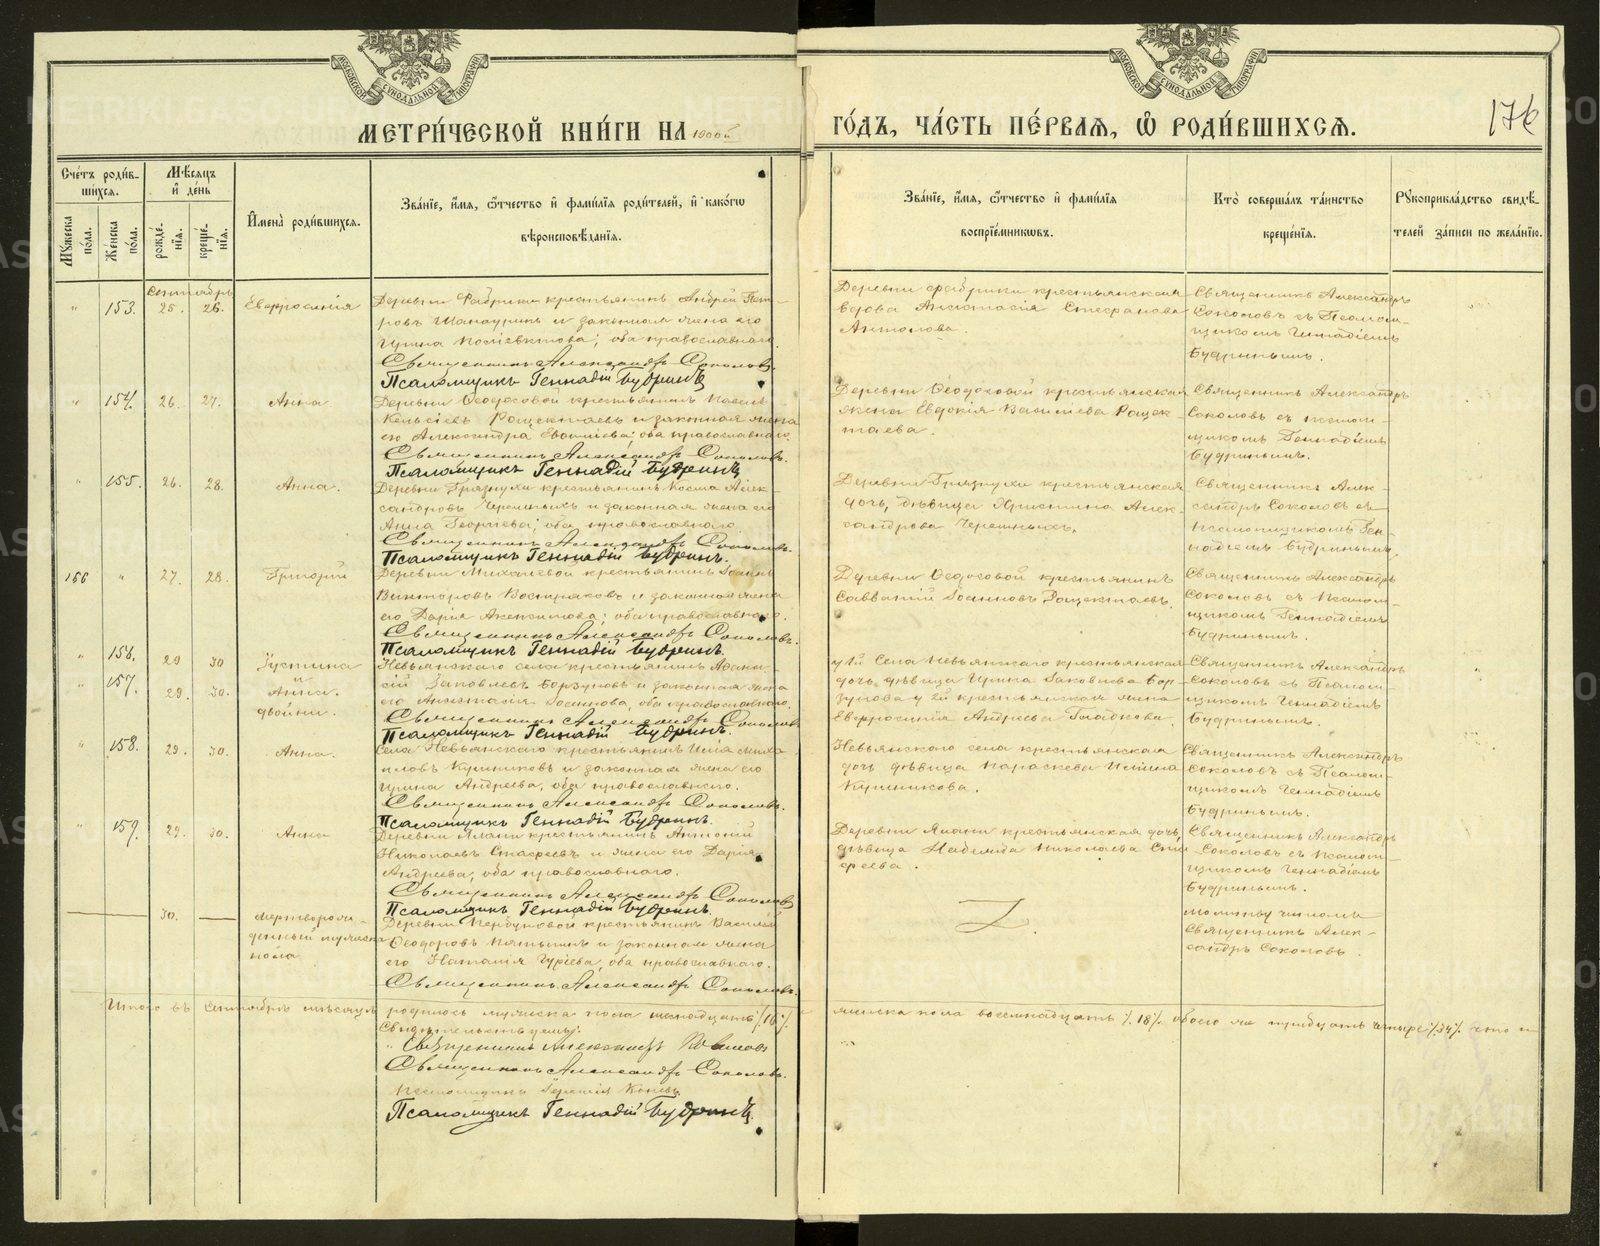 МЕТРИ́ЧЕСКОЙ КНИ́ГИ НА 1900й ГО́ДЪ, ЧА́СТЬ ПЕ́РВАЯ, Ѡ РОДИ́ВШИХСЯ.
176
Сче́тъ роди́в-
шихся.
Мѣ́сяцъ
и де́нь
Мꙋ́жеска по́ла.
Же́нска по́ла.
рожде́-
нїя.
креще́-
нїя.
И҆мена̀ роди́вшихся.
Зва́нїе, и҆́мя, ѻ҆́тчество и҆ фами́лїя роди́телей, и҆ како́гѡ
вѣроисповѣ́данїя.
Зва́нїе, и҆́мя, ѻ҆́тчество и҆ фами́лїя
воспрїе́мникѡвъ.
Кто̀ соверша́лъ та́инство
креще́нїя.
Рꙋкоприкла́дство свидѣ́-
телей за́писи по жела́нїю.
Сентябрь
" 153. 25. 26. Евфросинія
Деревни Фабрики крестьянинъ Андрей Пет-
ровъ и законная жена его
Ирина оба православнаго.
Священникъ Александръ Соколовъ.
Псаломщикъ Геннадій Будринъ
Деревни Фабрики крестьянская
вдова Анастасія Стефанова
Антонова.
Священникъ Александръ
Соколовъ съ Псалом-
щикомъ Геннадіемъ
Будринымъ.
" 154. 26. 27. Анна.
Деревни Ѳеодосовой крестьянинъ
Рощектаевъ и законная жена
его Александра оба православнаго.
Священникъ Александръ Соколовъ.
Псаломщикъ Геннадій Будринъ
Деревни Ѳеодосовой крестьянская
жена Евдокія Васильева Рощек-
таева.
Священникъ Александръ
Соколовъ съ псалом-
щикомъ Геннадіемъ
Будринымъ.
" 155. 26. 28. Анна.
Деревни Грязнухи крестьянинъ Косма Алек-
сандровъ Черемныхъ и законная жена его
Анна Георгіева; оба православнаго.
Священникъ Александръ Соколовъ.
Псаломщикъ Геннадій Будринъ.
Деревни Грязнухи крестьянская
дочь, дѣвица Христина Алек-
сандрова Черемныхъ.
Священникъ Алек-
сандръ Соколовъ съ
псаломщикомъ Ген-
надіемъ Будринымъ.
156 " 27. 28. Григорій
Деревни Михалевой крестьянинъ Іоаннъ
Викторовъ Востряковъ и законная жена
его Дарія Аксентова; оба православнаго.
Священникъ Александръ Соколовъ.
Псаломщикъ Геннадій Будринъ.
Деревни Ѳеодосовой крестьянинъ
Савватій Іоанновъ Рощектаевъ.
Священникъ Александръ
Соколовъ съ псалом-
щикомъ Геннадіемъ
Будринымъ.
" 156. 29 30 Іустина
и
" 157. 29. 30. Анна.
двойни.
Невьянскаго села крестьянинъ Аѳана-
сій Іаковлевъ Борзуновъ и законная жена
его Анастасія Іоаннова, оба православнаго.
Священникъ Александръ Соколовъ
Псаломщикъ Геннадій Будринъ.
у 1й Села Невьянскаго крестьянская
дочь дѣвица Ирина Іаковлева Бор-
зунова у 2й крестьянская жена
Евфросинія Андреева Гладкова.
Священникъ Александръ
Соколовъ съ Псалом-
щикомъ Геннадіемъ
Будринымъ.
" 158. 29. 30. Анна.
Села Невьянскаго крестьянинъ Илія Миха-
иловъ Куринковъ и законная жена его
Ирина Андреева, оба православнаго.
Священникъ Александръ Соколовъ.
Псаломщикъ Геннадій Будринъ.
Невьянскаго села крестьянская
дочь дѣвица Параскева Иліина
Куринкова.
Священникъ Александръ
Соколовъ съ Псалом-
щикомъ Геннадіемъ
Будринымъ.
" 159. 29. 30. Анна
Деревни Ялани крестьянинъ Антоній
Николаевъ Стафеевъ и жена его Дарія
Андреева, оба православнаго.
Священникъ Александръ Соколовъ
Псаломщикъ Геннадій Будринъ.
Деревни Ялани крестьянская дочь,
дѣвица Надежда Николаева Ста-
феева.
Священникъ Александръ
Соколовъ съ псалом-
щикомъ Геннадіемъ
Будринымъ.
30. мертворож-
денный мужска
пола
Деревни крестьянинъ Василій
Ѳеодоровъ и законная жена
его Наталія Гуріева, оба православнаго.
Священникъ Александръ Соколовъ.
молитву читалъ
Священникъ Алек-
сандръ Соколовъ.
Итого въ Сентябрѣ мѣсяцѣ родилось мужска пола шестнадцать /16/, женска пола восемнадцать /18/, обоего же тридцать четыре /34/, что и
Свидѣтельствуемъ:
Священникъ Александръ
Священникъ Александръ Соколовъ.
Псаломщикъ
Псаломщикъ Геннадій Будринъ.